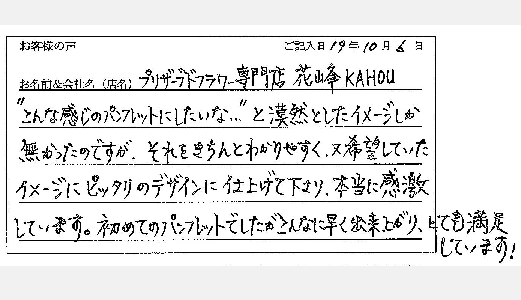 お客様の声 ご記入日 19年10月6日
お名前&会社名（店名） プリザーブドフラワー専門店 花峰 KAHOU
"こんな感じのパンフレットにしたいな…"と漠然としたイメージしか
無かったのですが、それをきちんとわかりやすく、又希望していた
イメージにピッタリのデザインに仕上げて下さり、本当に感激
しています。初めてのパンフレットでしたがこんなに早く出来上がり、とても満足
しています!